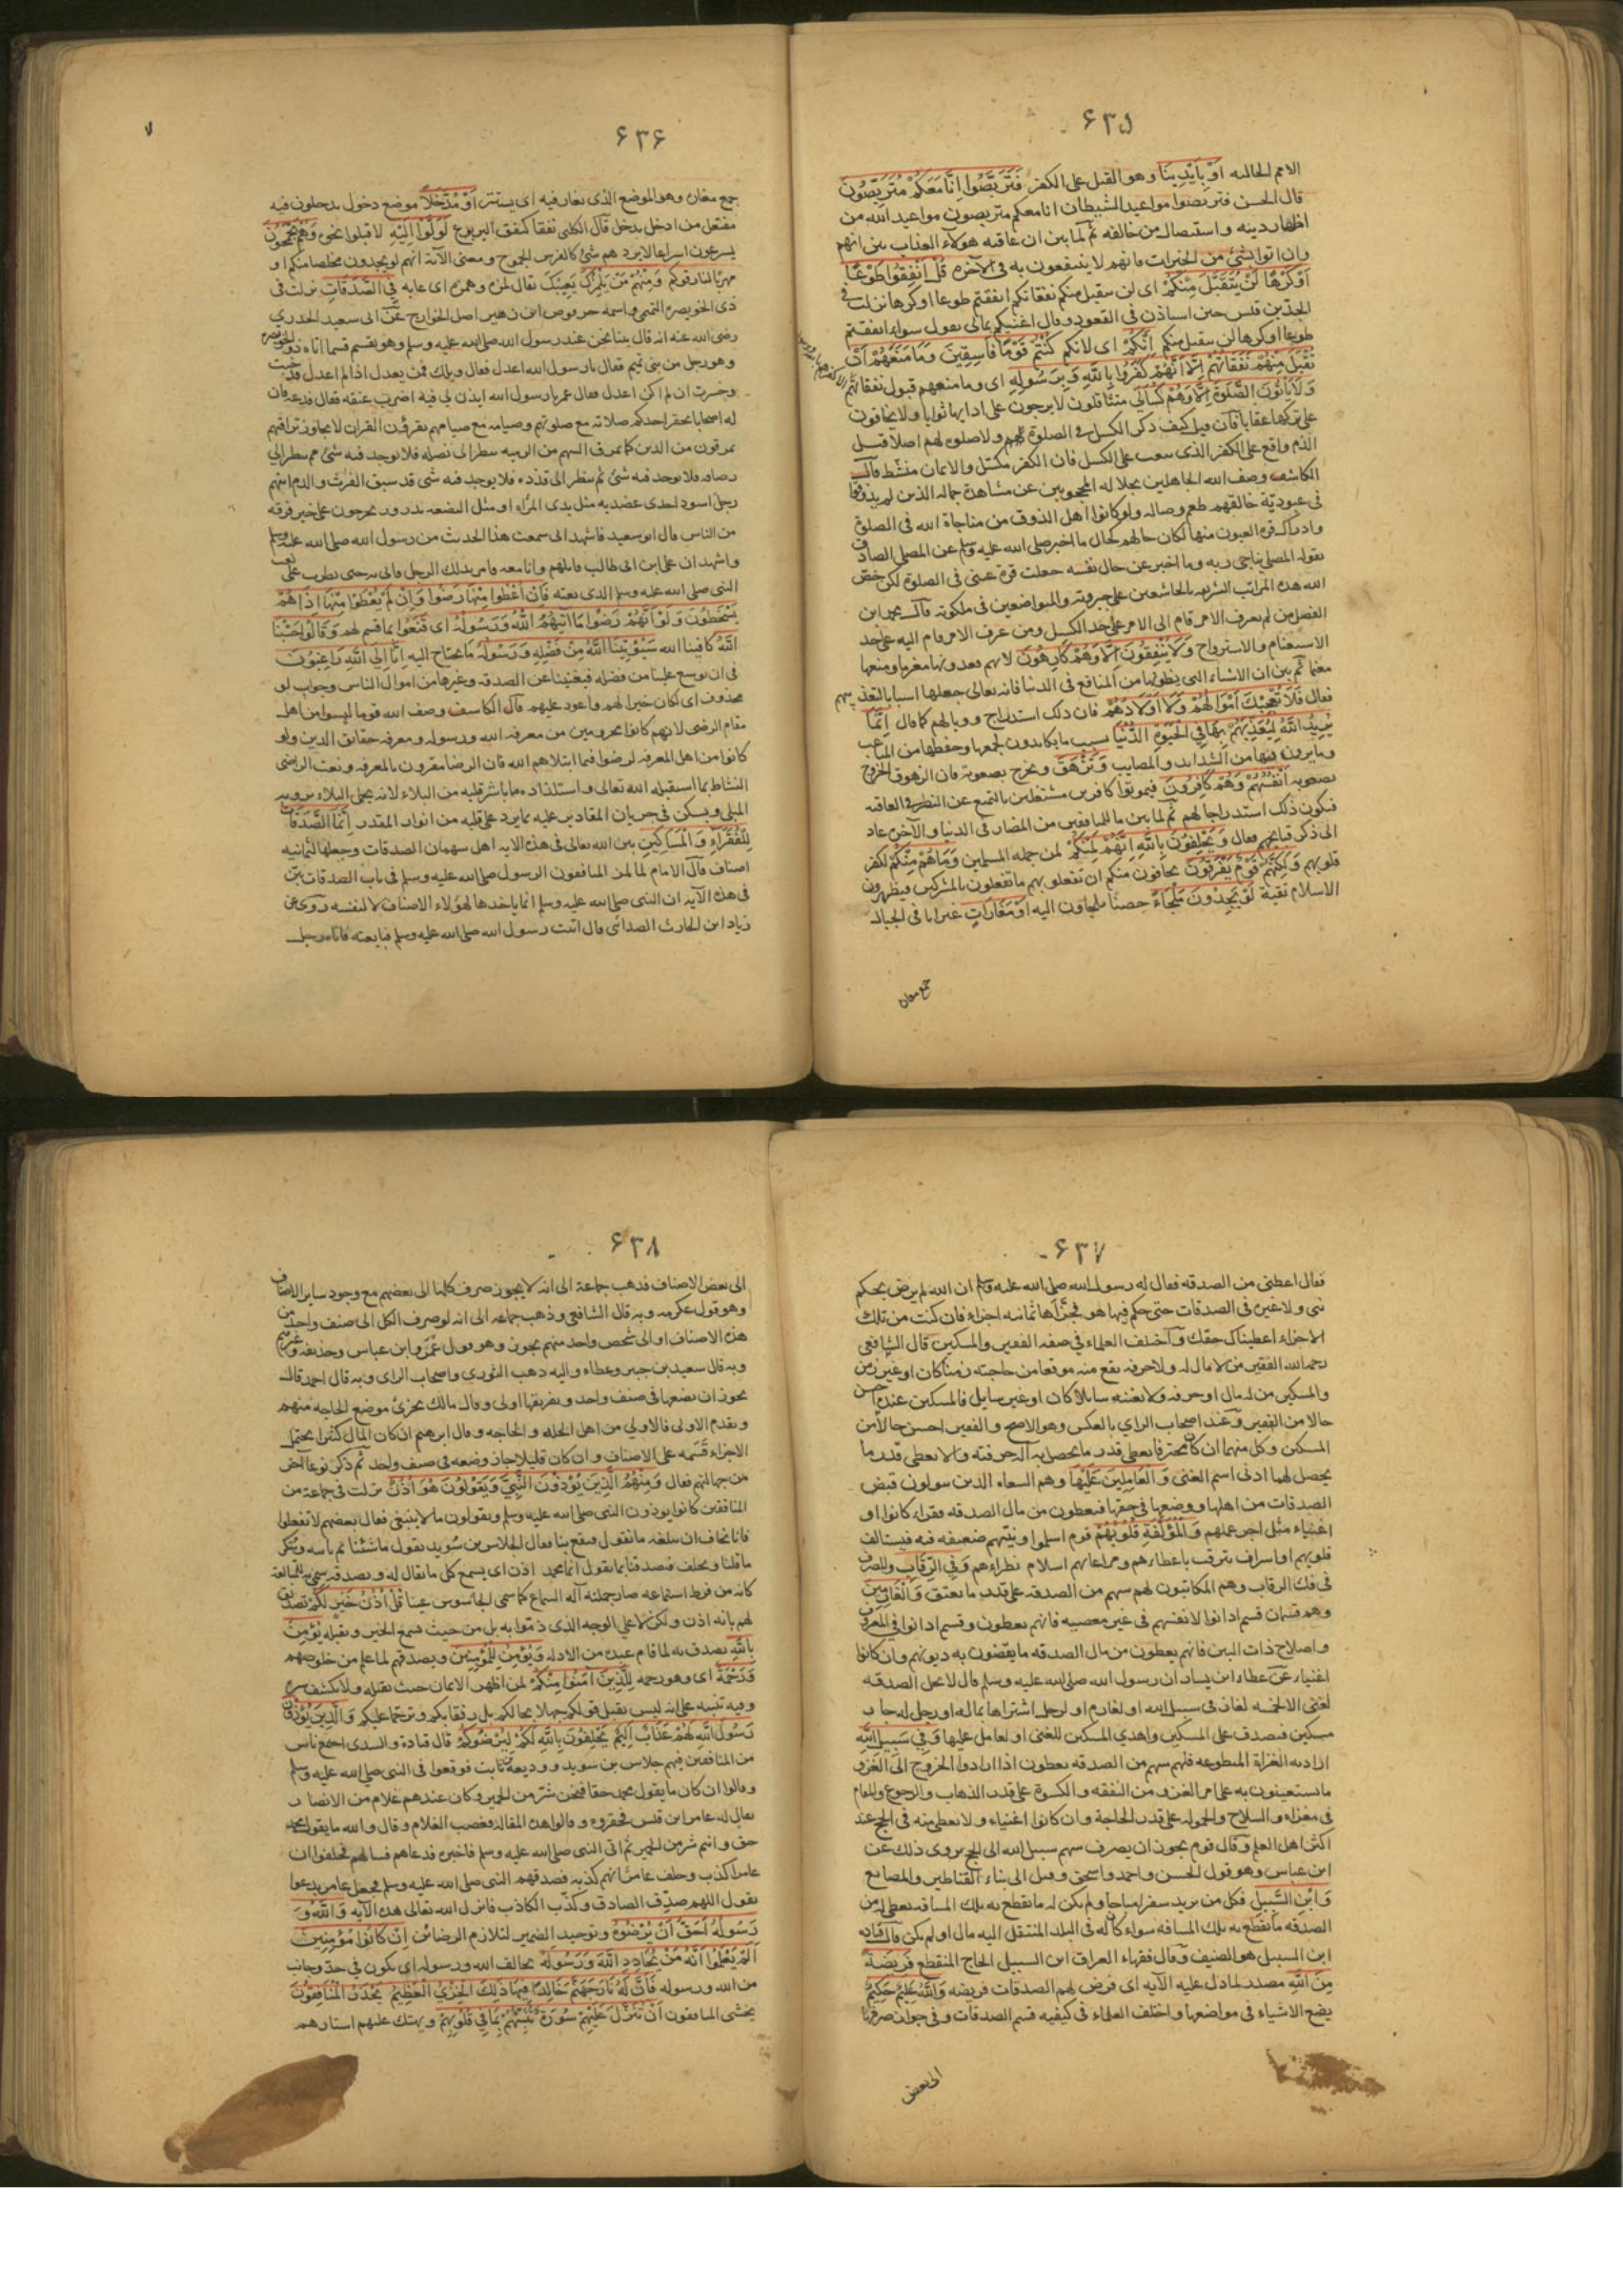 ۶۳۵
الامم الخاليه اَوْ بِاَيْدِينَا وهو القتل على الكفر فَتَرَبَّصُوا اِنَّا مَعَكُمْ مُتَرَبِّصُونَ
قال الحسن فتربصوا مواعيد الشيطان انا معكم متربصون مواعيد الله من
اظهار دينه واستيصال من خالفه ثم لما بين ان عاقبه هولاء العذاب بين انهم
وان اتوا بشئ من الخيرات فانهم لا ينتفعون به فى الآخرة قُلْ اَنْفِقُوا طَوْعًا
اَوْ كَرْهًا لَنْ يُتَقَبَّلَ مِنْكُمْ اى لن يتقبل منكم نفقاتكم انفقتم طوعا او كرها نزلت فى
الجد بن قيس حين استاذن فى القعود وقال اعينكم بمالى يقول سواء انفقتم
طوعا او كرها لن يتقبل منكم اِنَّكُمْ اى لانكم كُنْتُمْ قَوْمًا فَاسِقِينَ وَمَا مَنَعَهُمْ اَنْ
تُقْبَلَ مِنْهُمْ نَفَقَاتُهُمْ اِلَّا اَنَّهُمْ كَفَرُوا بِاللّٰهِ وَبِرَسُولِهِ اى وما منعهم قبول نفقاتهم
وَلَا يَاْتُونَ الصَّلٰوةَ اِلَّا وَهُمْ كُسَالٰى متثاقلون لا يرجون على ادايها ثوابا ولا يخافون
على تركها عقابا فان قيل كيف ذكر الكسل فى الصلوة ولا صلوة لهم اصلا قيل
الذم واقع على الكفر الذى يبعث على الكسل فان الكفر مكسل والايمان منشط قال
الكاشف وصف الله الجاهلين بجلاله المحجوبين عن مشاهدة جماله الذين لم يذوقوا
فى عبودية خالقهم طعم وصاله ولو كانوا اهل الذوق من مناجاة الله فى الصلوة
وادراك قرة العيون منها لكان حالهم كحال ما اخبر صلى الله عليه وسلم عن المصلى الصادق
بقوله المصلى يناجى ربه وما اخبر عن حال نفسه جعلت قرة عينى فى الصلوة لكن خص
الله هذه المراتب الشريفه بالخاشعين على جبروته والمتواضعين فى ملكوته قال محمد ابن
الفضل من لم يعرف الامر قام الى الامر على حد الكسل ومن عرف الامر قام اليه على حد
الاستغنام والاسترواح وَلَا يُنْفِقُونَ اِلَّا وَهُمْ كَارِهُونَ لانهم يعدونها مغرما ومنعها
مغنما ثم بين ان الاشياء التى يظنونها من المنافع فى الدنيا فانه تعالى جعلها اسبابا لتعذيبهم
فقال فَلَا تُعْجِبْكَ اَمْوَالُهُمْ وَلَا اَوْلَادُهُمْ فان ذلك استدراج ووبال لهم كما قال اِنَّمَا
يُرِيدُ اللّٰهُ لِيُعَذِّبَهُمْ بِهَا فِي الْحَيٰوةِ الدُّنْيَا بسبب ما يكابدون لجمعها وحفظها من المتاعب
وما يرون فيها من الشدايد والمصايب وَتَزْهَقَ ويخرج بصعوبة فان الزهوق الخروج
بصعوبة اَنْفُسُهُمْ وَهُمْ كَافِرُونَ فيموتوا كافرين مشتغلين بالتمتع عن النظر فى العاقبه
فيكون ذلك استدراجا لهم ثم لما بين ما للمنافقين من المضار فى الدنيا والآخرة عاد
الى ذكر قبايحهم فقال وَيَحْلِفُونَ بِاللّٰهِ اِنَّهُمْ لَمِنْكُمْ لمن جمله المسلمين وَمَا هُمْ مِنْكُمْ لكفر
قلوبهم وَلٰكِنَّهُمْ قَوْمٌ يَفْرَقُونَ يخافون منكم ان تفعلوا بهم ما تفعلون بالمشركين فيظهرون
الاسلام تقية لَوْ يَجِدُونَ مَلْجَاً حصنا يلجاون اليه اَوْ مَغَارَاتٍ غيرانا فى الجبال
جمع مغارة
۶۳۶
جمع مغارة وهو الموضع الذى يغار فيه اى يستتر اَوْ مُدَّخَلًا موضع دخول يدخلون فيه
مفتعل من ادخل يدخل قال الكلبى نفقا كنفق اليربوع لَوَلَّوْا اِلَيْهِ لاقبلوا نحوه وَهُمْ يَجْمَحُونَ
يسرعون اسراعا لا يردهم شئ كالفرس الجموح ومعنى الآية انهم لو يجدون مخلصا منكم او
مهربا لفارقوكم وَمِنْهُمْ مَنْ يَلْمِزُكَ يعيبك يقال لمزه وهمزه اى عابه فِي الصَّدَقَاتِ نزلت فى
ذى الخويصره التميمى واسمه حرقوص ابن زهير اصل الخوارج عن ابى سعيد الخدرى
رضى الله عنه انه قال بينا نحن عند رسول الله صلى الله عليه وسلم وهو يقسم قسما اتاه ذو الخويصره
وهو رجل من بنى تميم فقال يا رسول الله اعدل فقال ويلك فمن يعدل اذا لم اعدل قد خبت
وخسرت ان لم اكن اعدل فقال عمر يا رسول الله ايذن لى فيه اضرب عنقه فقال فدعه فان
له اصحابا يحقر احدكم صلاته مع صلوتهم وصيامه مع صيامهم يقرؤن القران لا يجاوز تراقيهم
يمرقون من الدين كما يمرق السهم من الرميه ينظر الى نصله فلا يوجد فيه شئ ثم ينظر الى
رصافه فلا يوجد فيه شئ ثم ينظر الى قذذه فلا يوجد فيه شئ قد سبق الفرث والدم ايتهم
رجل اسود احدى عضديه مثل ثدى المراه او مثل البضعه تدردر يخرجون على خير فرقه
من الناس قال ابو سعيد فاشهد انى سمعت هذا الحديث من رسول الله صلى الله عليه وسلم
واشهد ان على ابن ابى طالب قاتلهم وانا معه فامر بذلك الرجل فاتى به حتى نظرت على نعت
النبى صلى الله عليه وسلم الذى نعته فَاِنْ اُعْطُوا مِنْهَا رَضُوا وَاِنْ لَمْ يُعْطَوْا مِنْهَا اِذَا هُمْ
يَسْخَطُونَ وَلَوْ اَنَّهُمْ رَضُوا مَا اٰتٰيهُمُ اللّٰهُ وَرَسُولُهُ اى قنعوا بما قسم لهم وَقَالُوا حَسْبُنَا
اللّٰهُ كافينا الله سَيُؤْتِينَا اللّٰهُ مِنْ فَضْلِهِ وَرَسُولُهُ ما نحتاج اليه اِنَّا اِلَى اللّٰهِ رَاغِبُونَ
فى ان يوسع علينا من فضله فيغنينا عن الصدقه وغيرها من اموال الناس وجواب لو
محذوف اى لكان خيرا لهم واعود عليهم قال الكاشف وصف الله قوما ليسوا من اهل
مقام الرضى لانهم كانوا محرومين من معرفه الله ورسوله ومعرفه حقايق الدين ولو
كانوا من اهل المعرفه لرضوا فيما ابتلاهم الله فان الرضا مقرون بالمعرفه ونعت الراضى
النشاط بما استقبله الله تعالى واستلذاذه ما باشر قلبه من البلاء لانه يحمل البلاء برويه
المبلى ويسكن فى جريان المقادير عليه بما يرد على قلبه من انوار المقدر اِنَّمَا الصَّدَقَاتُ
لِلْفُقَرَاءِ وَالْمَسَاكِينِ بين الله تعالى فى هذه الايه اهل سهمان الصدقات وجعلها لثمانيه
اصناف قال الامام لما لمز المنافقون الرسول صلى الله عليه وسلم فى باب الصدقات بين
فى هذه الآيه ان النبى صلى الله عليه وسلم انما ياخذها لهؤلاء الاصناف لا لنفسه روى عن
زياد ابن الحارث الصدائى قال اتيت رسول الله صلى الله عليه وسلم فبايعته فاتاه رجل
۶۳۷
فقال اعطنى من الصدقه فقال له رسول الله صلى الله عليه وسلم ان الله لم يرض بحكم
نبى ولا غيره فى الصدقات حتى حكم فيها هو فجزأها ثمانيه اجزاء فان كنت من تلك
الاجزاء اعطيناك حقك واختلف العلماء فى صفه الفقير والمسكين قال الشافعى
رحمه الله الفقير من لا مال له ولا حرفه يقع منه موقعا من حاجته زمنا كان او غير زمن
والمسكين من له مال او حرفه ولا يغنيه سايلا كان او غير سايل فالمسكين عنده احسن
حالا من الفقير وعند اصحاب الراى بالعكس وهو الاصح والفقير احسن حالا من
المسكين وكل منهما ان كان محترفا يعطى قدر ما يحصل به آله حرفته والا يعطى قدر ما
يحصل لهما ادنى اسم الغنى وَالْعَامِلِينَ عَلَيْهَا وهم السعاه الذين يتولون قبض
الصدقات من اهلها ووضعها فى حقها فيعطون من مال الصدقه فقراء كانوا او
اغنياء مثل اجر عملهم وَالْمُؤَلَّفَةِ قُلُوبُهُمْ قوم اسلموا ونيتهم ضعيفه فيه فيستالف
قلوبهم او اشراف يترقب باعطائهم ومراعاتهم اسلام نظرائهم وَفِي الرِّقَابِ وللصرف
فى فك الرقاب وهم المكاتبون لهم سهم من الصدقه على قدر ما يعتق وَالْغَارِمِينَ
وهم قسمان قسم ادانوا لانفسهم فى غير معصيه فانهم يعطون وقسم ادانوا فى المعروف
واصلاح ذات البين فانهم يعطون من مال الصدقه ما يقضون به ديونهم وان كانوا
اغنياء عن عطاء ابن يسار ان رسول الله صلى الله عليه وسلم قال لا تحل الصدقه
لغنى الا لخمسه لغاز فى سبيل الله او لغارم او لرجل اشتراها بماله او رجل له جار
مسكين فتصدق على المسكين واهدى المسكين للغنى او لعامل عليها وَفِي سَبِيلِ اللّٰهِ
اراد به الغزاة المتطوعه فلهم سهم من الصدقه يعطون اذا ارادوا الخروج الى الغزو
ما يستعينون به على امر الغزو من النفقه والكسوة على قدر الذهاب والرجوع والمقام
فى مغزاه والسلاح والحموله على قدر الحاجة وان كانوا اغنياء ولا يعطى منه فى الحج عند
اكثر اهل العلم وقال قوم يجوز ان يصرف سهم سبيل الله الى الحج يروى ذلك عن
ابن عباس وهو قول الحسن واحمد واسحق وقيل الى بناء القناطير والمصانع
وَابْنِ السَّبِيلِ فكل من يريد سفرا مباحا ولم يكن له ما يقطع به تلك المسافه يعطى له من
الصدقه ما يقطع به تلك المسافه سواء كان له فى البلد المنتقل اليه مال او لم يكن قال قتاده
ابن السبيل هو الضيف وقال فقهاء العراق ابن السبيل الحاج المنقطع فَرِيضَةً
مِنَ اللّٰهِ مصدر لما دل عليه الآيه اى فرض لهم الصدقات فريضه وَاللّٰهُ عَلِيمٌ حَكِيمٌ
يضع الاشياء فى مواضعها واختلف العلماء فى كيفيه قسم الصدقات وفى جواز صرفها
الى بعض
۶۳۸
الى بعض الاصناف فذهب جماعة الى انه لا يجوز صرف كلها الى بعضهم مع وجود ساير الاصناف
وهو قول عكرمه وبه قال الشافعى وذهب جماعه الى انه لو صرف الكل الى صنف واحد من
هذه الاصناف او الى شخص واحد منهم يجوز وهو قول عمر وابن عباس وحذيفه وغيرهم
وبه قال سعيد بن جبير وعطاء واليه ذهب الثورى واصحاب الراى وبه قال احمد قال
يجوز ان يضعها فى صنف واحد وتفريقها اولى وقال مالك يتحرى موضع الحاجه منهم
ويقدم الاولى فالاولى من اهل الخله والحاجه وقال ابرهيم ان كان المال كثيرا يحتمل
الاجزاء قسمه على الاصناف وان كان قليلا جاز وضعه فى صنف واحد ثم ذكر نوعا آخر
من جهالتهم فقال وَمِنْهُمُ الَّذِينَ يُؤْذُونَ النَّبِيَّ وَيَقُولُونَ هُوَ اُذُنٌ نزلت فى جماعة من
المنافقين كانوا يوذون النبى صلى الله عليه وسلم ويقولون ما لا ينبغى فقال بعضهم لا تفعلوا
فانا نخاف ان يبلغه ما نقول فيقع بنا فقال الجلاس بن سويد نقول ما شئنا ثم ناتيه وننكر
ما قلنا ونحلف فيصدقنا بما نقول انما محمد اذن اى يسمع كل ما يقال له ويصدقه سمى به للمبالغه
كانه من فرط استماعه صار جملته آله السماع كما سمى الجاسوس عينا قُلْ اُذُنُ خَيْرٍ لَكُمْ تصديق
لهم بانه اذن ولكن لا على الوجه الذى ذموا به بل من حيث يسمع الخير ويقبله يُؤْمِنُ
بِاللّٰهِ يصدق به لما قام عنده من الادله وَيُؤْمِنُ لِلْمُؤْمِنِينَ ويصدقهم لما علم من خلوصهم
وَرَحْمَةٌ اى وهو رحمه لِلَّذِينَ اٰمَنُوا مِنْكُمْ لمن اظهر الايمان حيث يقبله ولا يكشف سره
وفيه تنبيه على انه ليس يقبل قولكم جهلا بحالكم بل رفقا بكم وترحما عليكم وَالَّذِينَ يُؤْذُونَ
رَسُولَ اللّٰهِ لَهُمْ عَذَابٌ اَلِيمٌ يَحْلِفُونَ بِاللّٰهِ لَكُمْ لِيُرْضُوكُمْ قال قتادة والسدى اجتمع ناس
من المنافقين فيهم جلاس بن سويد ووديعة بن ثابت فوقعوا فى النبى صلى الله عليه وسلم
وقالوا ان كان ما يقول محمد حقا فنحن شر من الحمير وكان عندهم غلام من الانصار
يقال له عامر ابن قيس فحقروه وقالوا هذه المقاله فغضب الغلام وقال والله ما يقول محمد
حق وانتم شر من الحمير ثم اتى النبى صلى الله عليه وسلم فاخبره فدعاهم فسالهم فحلفوا ان
عامرا كذب وحلف عامر انهم كذبه فصدقهم النبى صلى الله عليه وسلم فجعل عامر يدعوا
يقول اللهم صدق الصادق وكذب الكاذب فانزل الله تعالى هذه الآيه وَاللّٰهُ وَ
رَسُولُهُ اَحَقُّ اَنْ يُرْضُوهُ وتوحيد الضمير لتلازم الرضائين اِنْ كَانُوا مُؤْمِنِينَ
اَلَمْ يَعْلَمُوا اَنَّهُ مَنْ يُحَادِدِ اللّٰهَ وَرَسُولَهُ يخالف الله ورسوله اى يكون فى حد وجانب
من الله ورسوله فَاَنَّ لَهُ نَارَ جَهَنَّمَ خَالِدًا فِيهَا ذٰلِكَ الْخِزْيُ الْعَظِيمُ يَحْذَرُ الْمُنَافِقُونَ
يخشى المنافقون اَنْ تُنَزَّلَ عَلَيْهِمْ سُورَةٌ تُنَبِّئُهُمْ بِمَا فِي قُلُوبِهِمْ ويهتك عليهم استارهم